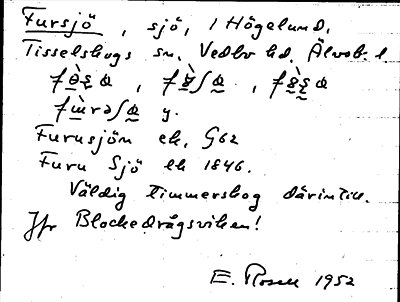 Fursjö, sjö, i Högelund,
Tisselskogs sn. Vedbo hd. Älvsb. l
Furusjön ek. G62
Furu Sjö ek 1846.
Väldig timmerskog därintill.
Jfr Blockedrågsviken!
E. Rosell 1952